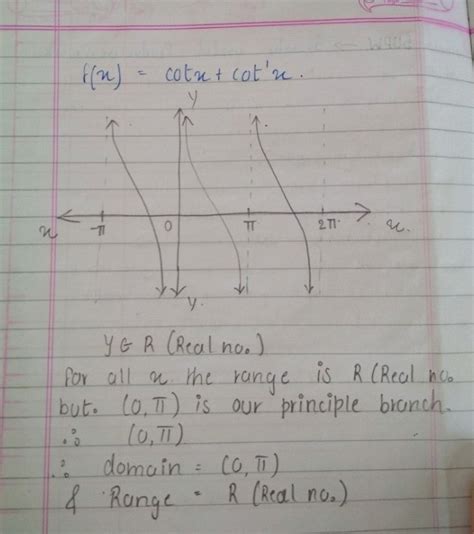 f(x) = cotx + cot'x.
y
x -π 0 π 2π x.
y.
y ∈ R (Real no.)
for all x the range is R (Real no.
but. (0, π) is our principle branch.
∴ (0, π)
∴ domain = (0, π)
& Range = R (Real no.)